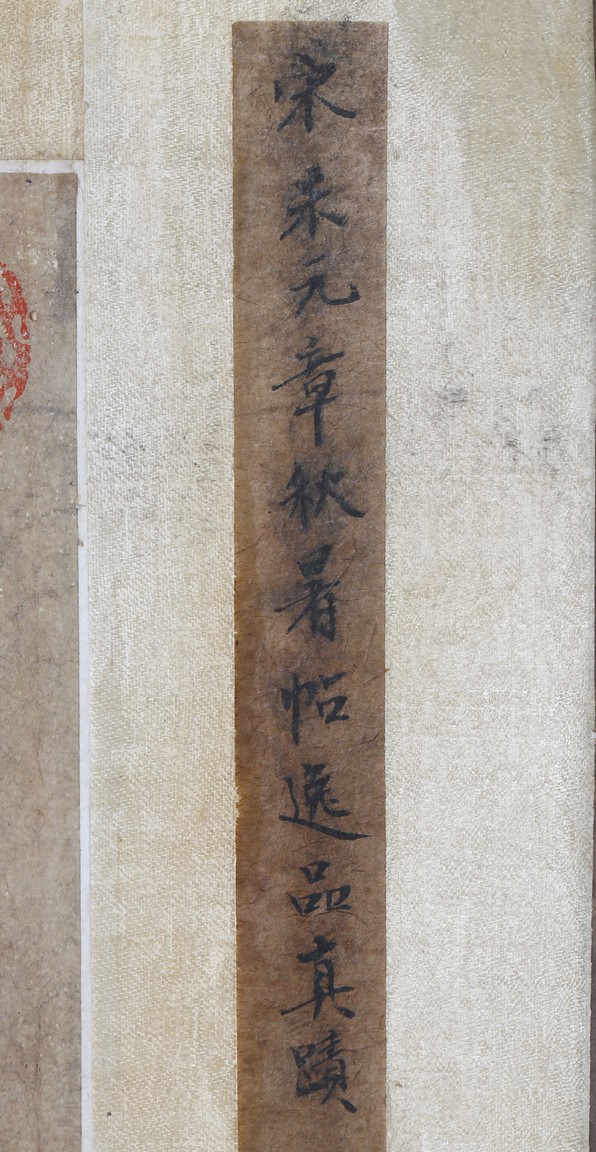 宋米元章秋暑帖逸品真蹟